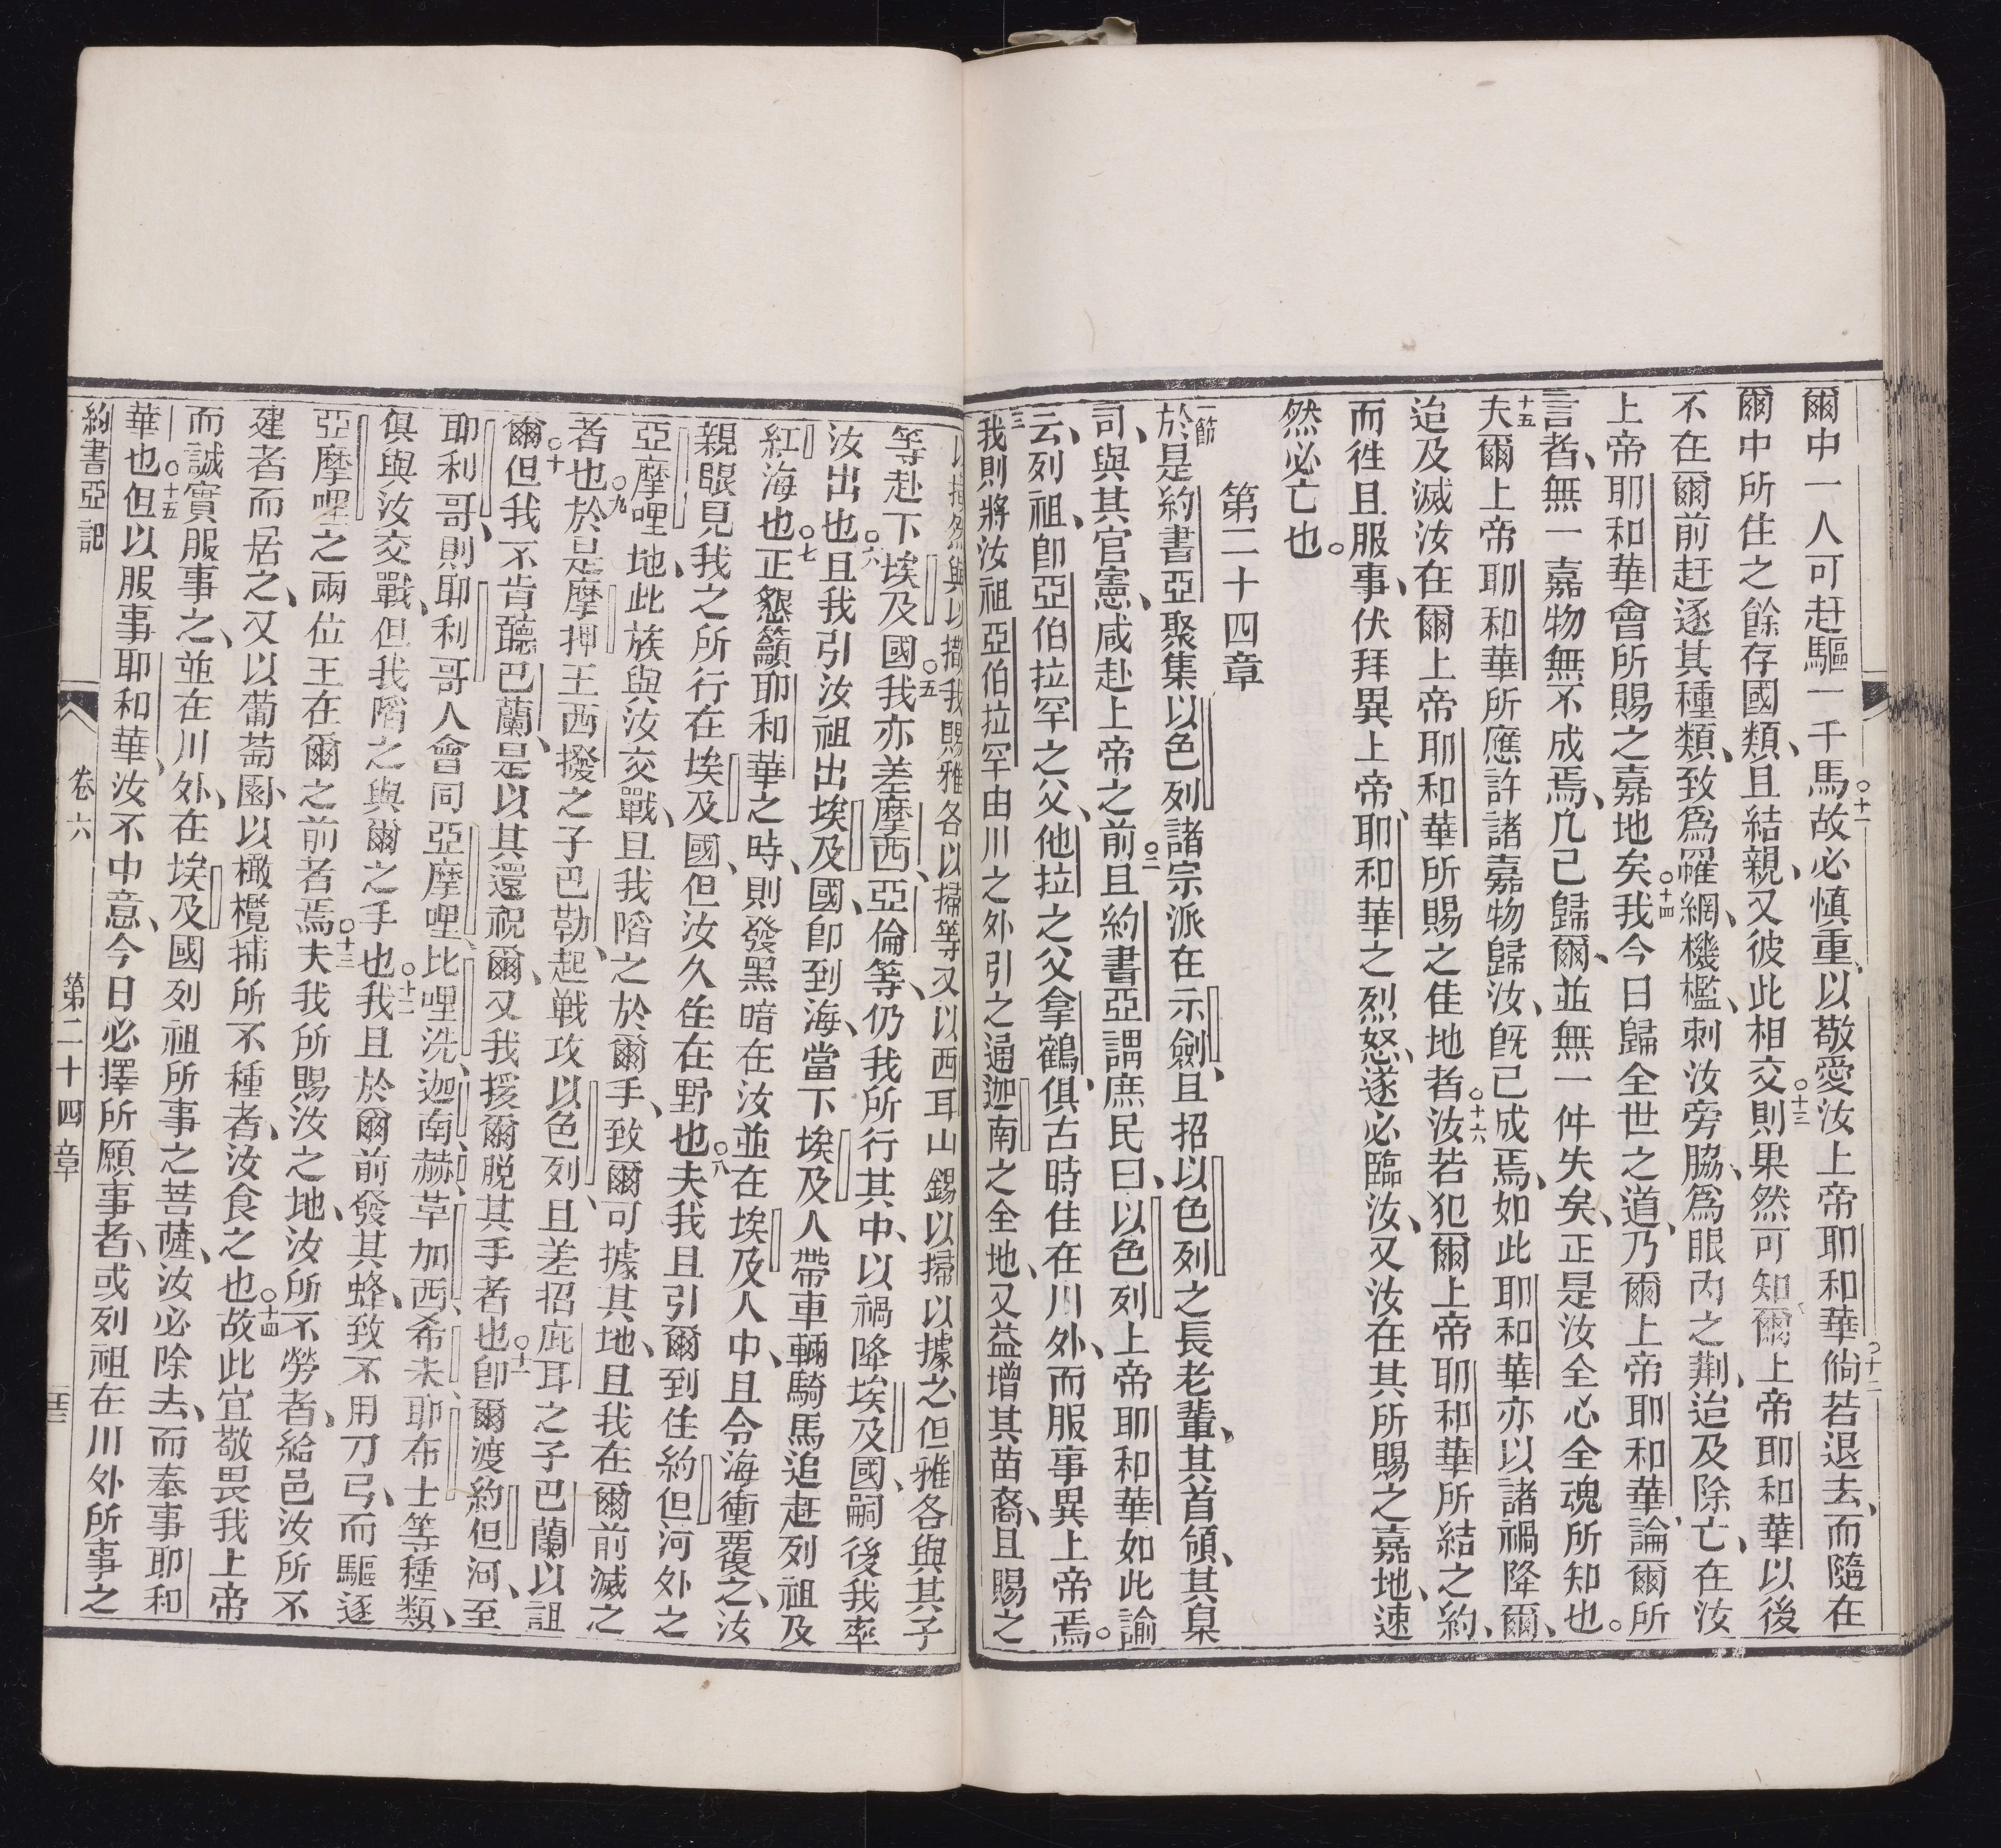 爾中一人可赶驅一千馬○十一故必慎重、以敬愛汝上帝耶和華○十二倘若退去、而隨在
爾中所住之餘存國類、且結親、又彼此相交○十三則果然可知爾上帝耶和華以後
不在爾前赶逐其種類、致爲羅網、機檻、刺汝旁脇、爲眼內之荆、迨及除亡、在汝
上帝耶和華會所賜之嘉地矣○十四我今日歸全世之道、乃爾上帝耶和華、論爾所
言者、無一嘉物無不成焉、凡已歸爾、並無一件失矣、正是汝全心全魂所知也。
十五夫爾上帝耶和華所應許諸嘉物歸汝、旣已成焉、如此耶和華亦以諸禍降爾、
迨及滅汝在爾上帝耶和華所賜之佳地者○十六汝若犯爾上帝耶和華所結之約、
而徃且服事、伏拜異上帝、耶和華之烈怒、遂必臨汝、又汝在其所賜之嘉地、速
然必亡也。
第二十四章
一節於是約書亞聚集以色列諸宗派在示劍、且招以色列之長老輩、其首領、其臬
司、與其官憲、咸赴上帝之前○二且約書亞謂庶民曰、以色列上帝耶和華如此諭
云、列祖、卽亞伯拉罕之父、他拉之父拿鶴、俱古時住在川外、而服事異上帝焉。
三我則將汝祖亞伯拉罕由川之外引之通迦南之全地、又益增其苗裔、且賜之
以撒然與以撒我賜雅各以掃等又以西耳山錫以掃以據之但雅各與其子
等赴下埃及國○五我亦差摩西、亞倫等、仍我所行其中、以禍降埃及國、嗣後我率
汝出也○六且我引汝祖出埃及國、卽到海、當下埃及人帶車輛騎馬追赶列祖及
紅海也○七正懇籲耶和華之時、則發黑暗在汝並在埃及人中、且令海衝覆之、汝
親眼見我之所行在埃及國、但汝久住在野也○八夫我且引爾到住約但河外之
亞摩哩地、此族與汝交戰、且我陷之於爾手、致爾可據其地、且我在爾前滅之
者也○九於是摩押王西撥之子巴勒、起戰攻以色列、且差招庇耳之子巴蘭以詛
爾○十但我不肯聽巴蘭、是以其還祝爾、又我援爾脱其手者也○十一卽爾渡約但河、至
耶利哥、則耶利哥人會同亞摩哩、比哩洗、迦南、赫、革加西、希未、耶布士等種類、
俱與汝交戰、但我陷之與爾之手也○十二我且於爾前發其蜂、致不用刀弓、而驅逐
亞摩哩之兩位王在爾之前者焉○十三夫我所賜汝之地、汝所不勞者、給邑汝所不
建者而居之、又以葡萄園、以橄欖捕所不種者、汝食之也○十四故此宜敬畏我上帝
而誠實服事之、並在川外、在埃及國列祖所事之菩薩、汝必除去、而奉事耶和
華也○十五但以服事耶和華、汝不中意、今日必擇所願事者、或列祖在川外所事之
約書亞記 卷六 第二十四章